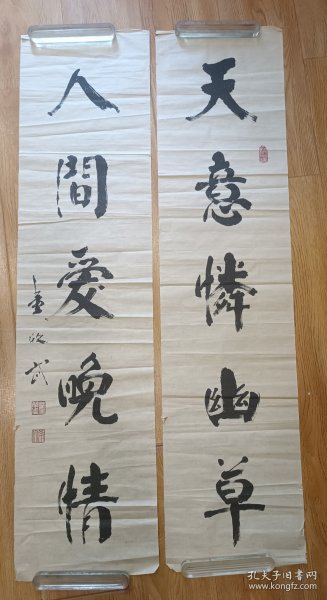 天意憐幽草
人間愛晚情
董欣武
孔夫子旧书网
www.kongfz.com